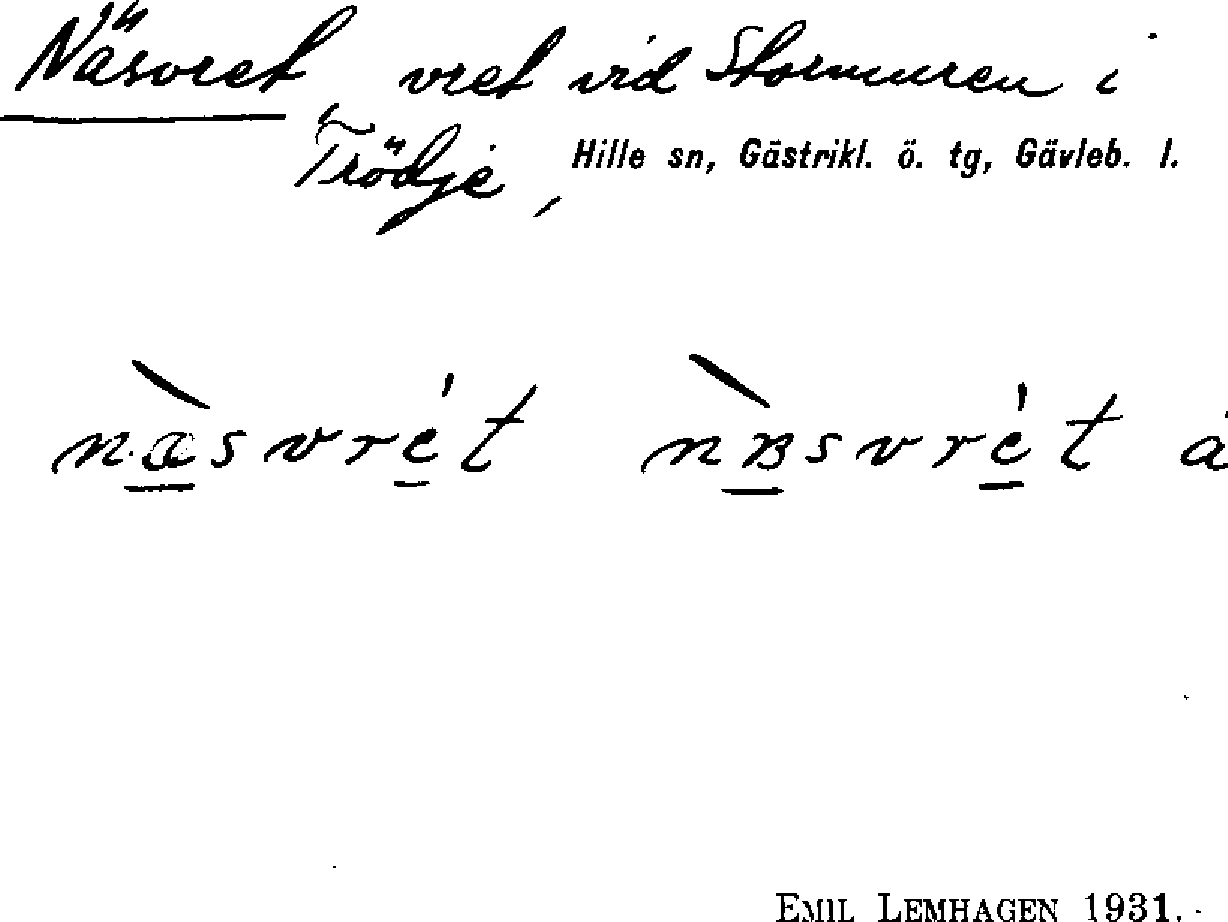 Näsvret, vret vid Stormuren i
Trödje, Hille sn, Gästrikl. ö. tg, Gävleb. l.
næ̀svrét nʙ̀svrét å
EMIL LEMHAGEN 1931.